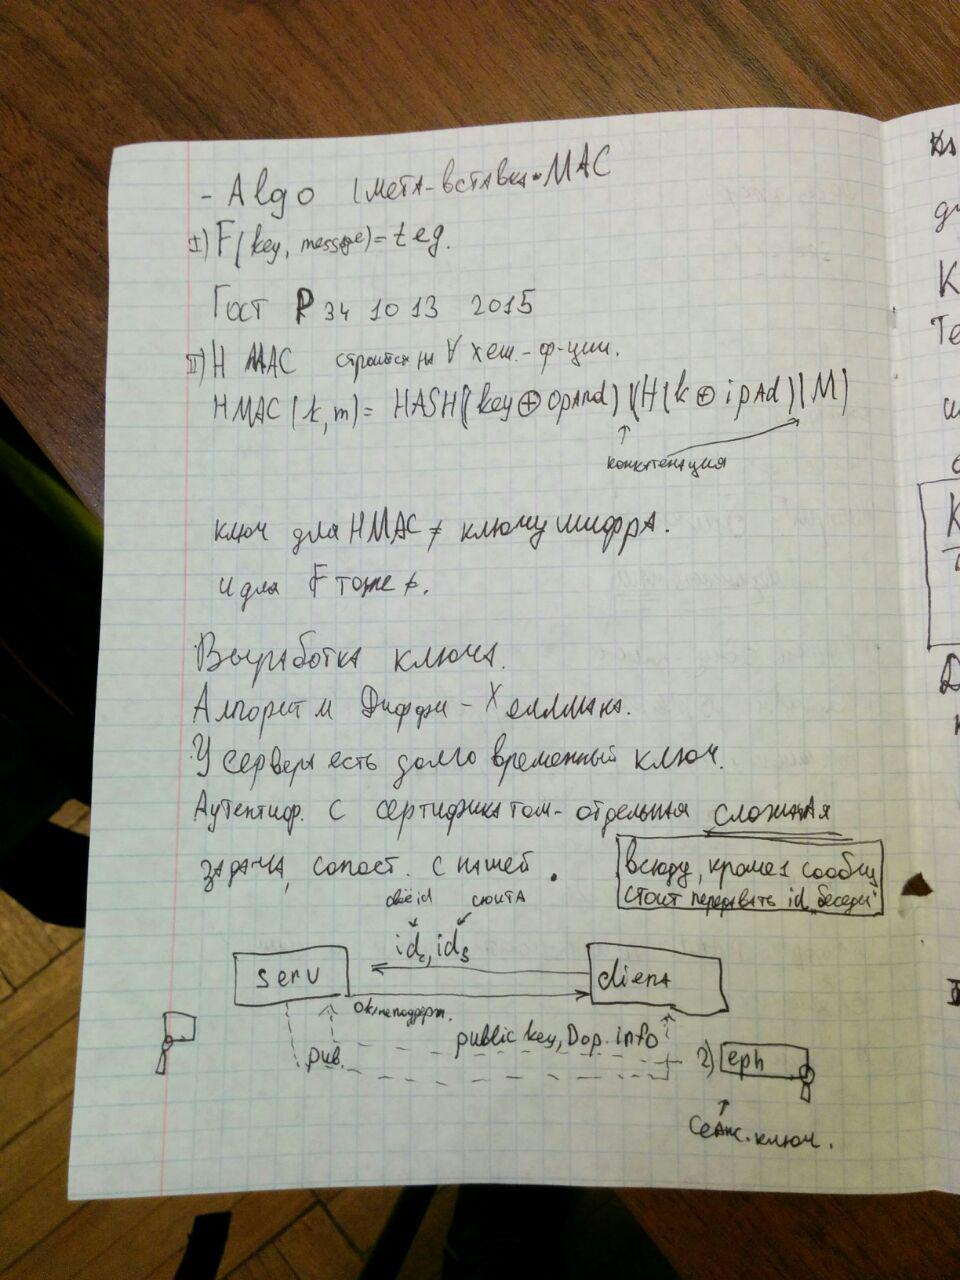 - Algo имета-вставка MAC
I) F(key, message)=teg.
Гост Р 34 10 13 2015
II) H MAC строится на ∀ хеш.-ф-ции.
HMAC(k,m)= HASH((key⊕opand)|(H(k⊕ipAd)|M)
конкатенация
ключ для HMAC ≠ ключу шифра.
и для F тоже ≠.
Выработка ключа.
Алгоритм Диффи-Хеллмана.
У сервера есть долго временный ключ.
Аутентиф. с сертификатом- отдельная сложная
задача, сопост. с нашей.
всюду, кроме 1 сообщ
стоит передавать id "беседы"
своё id сюита
id_c, id_s
serv client
ok/не поддерж.
public key, Dop. info
pub.
2) eph
Сеанс. ключ.